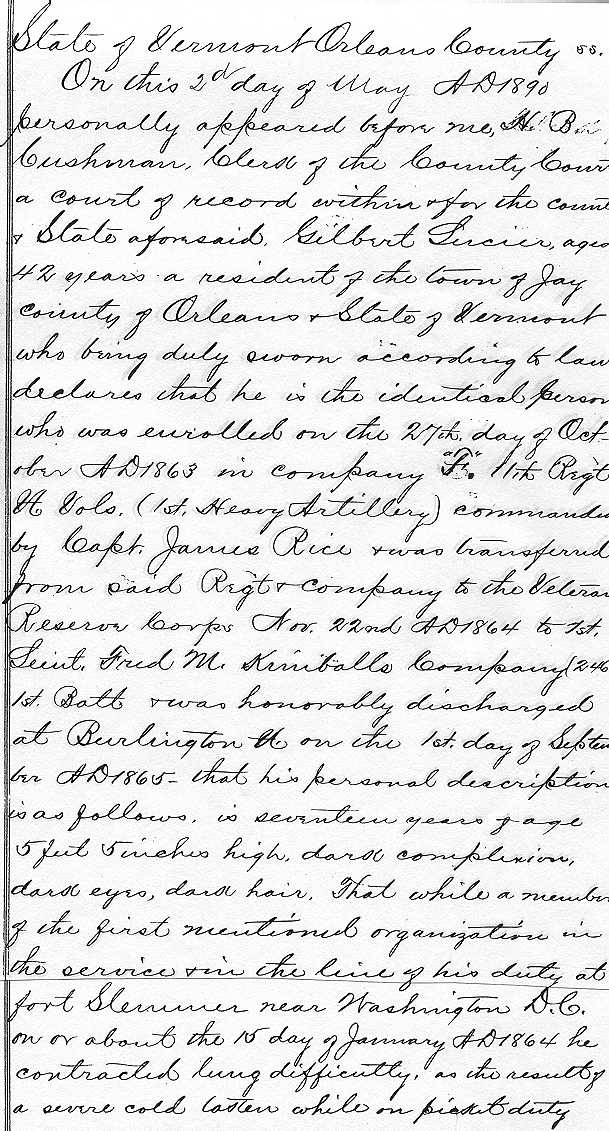 State of Vermont Orleans County ss.
On this 2d day of May AD 1890
personally appeared before me, H. B.
Cushman, Clerk of the County Cour
a court of record within & for the count
& State aforesaid, Gilbert Lucier, aged
42 years a resident of the town of Jay
county of Orleans & State of Vermont
who being duly sworn according to law
declares that he is the identical person
who was enrolled on the 27th day of Oct-
ober AD 1863 in company "F". 11th Regt
Vt Vols. (1st. Heavy Artillery) commanded
by Capt. James Rice & was transferred
from said Regt & company to the Veteran
Reserve Corps Nov. 22nd AD 1864 to 1st.
Leiut. Fred M. Kimballs Company (246
1st. Batt & was honorably discharged
at Burlington Vt on the 1st. day of Septem
ber AD 1865 - that his personal description
is as follows. is seventeen years of age
5 feet 5 inches high, dark complexion,
dark eyes, dark hair. That while a member
of the first mentioned organization in
the service & in the line of his duty at
fort Slemmer near Washington D.C.
on or about the 15 day of January AD 1864 he
contracted lung difficulty, as the result of
a severe cold taken while on picket duty